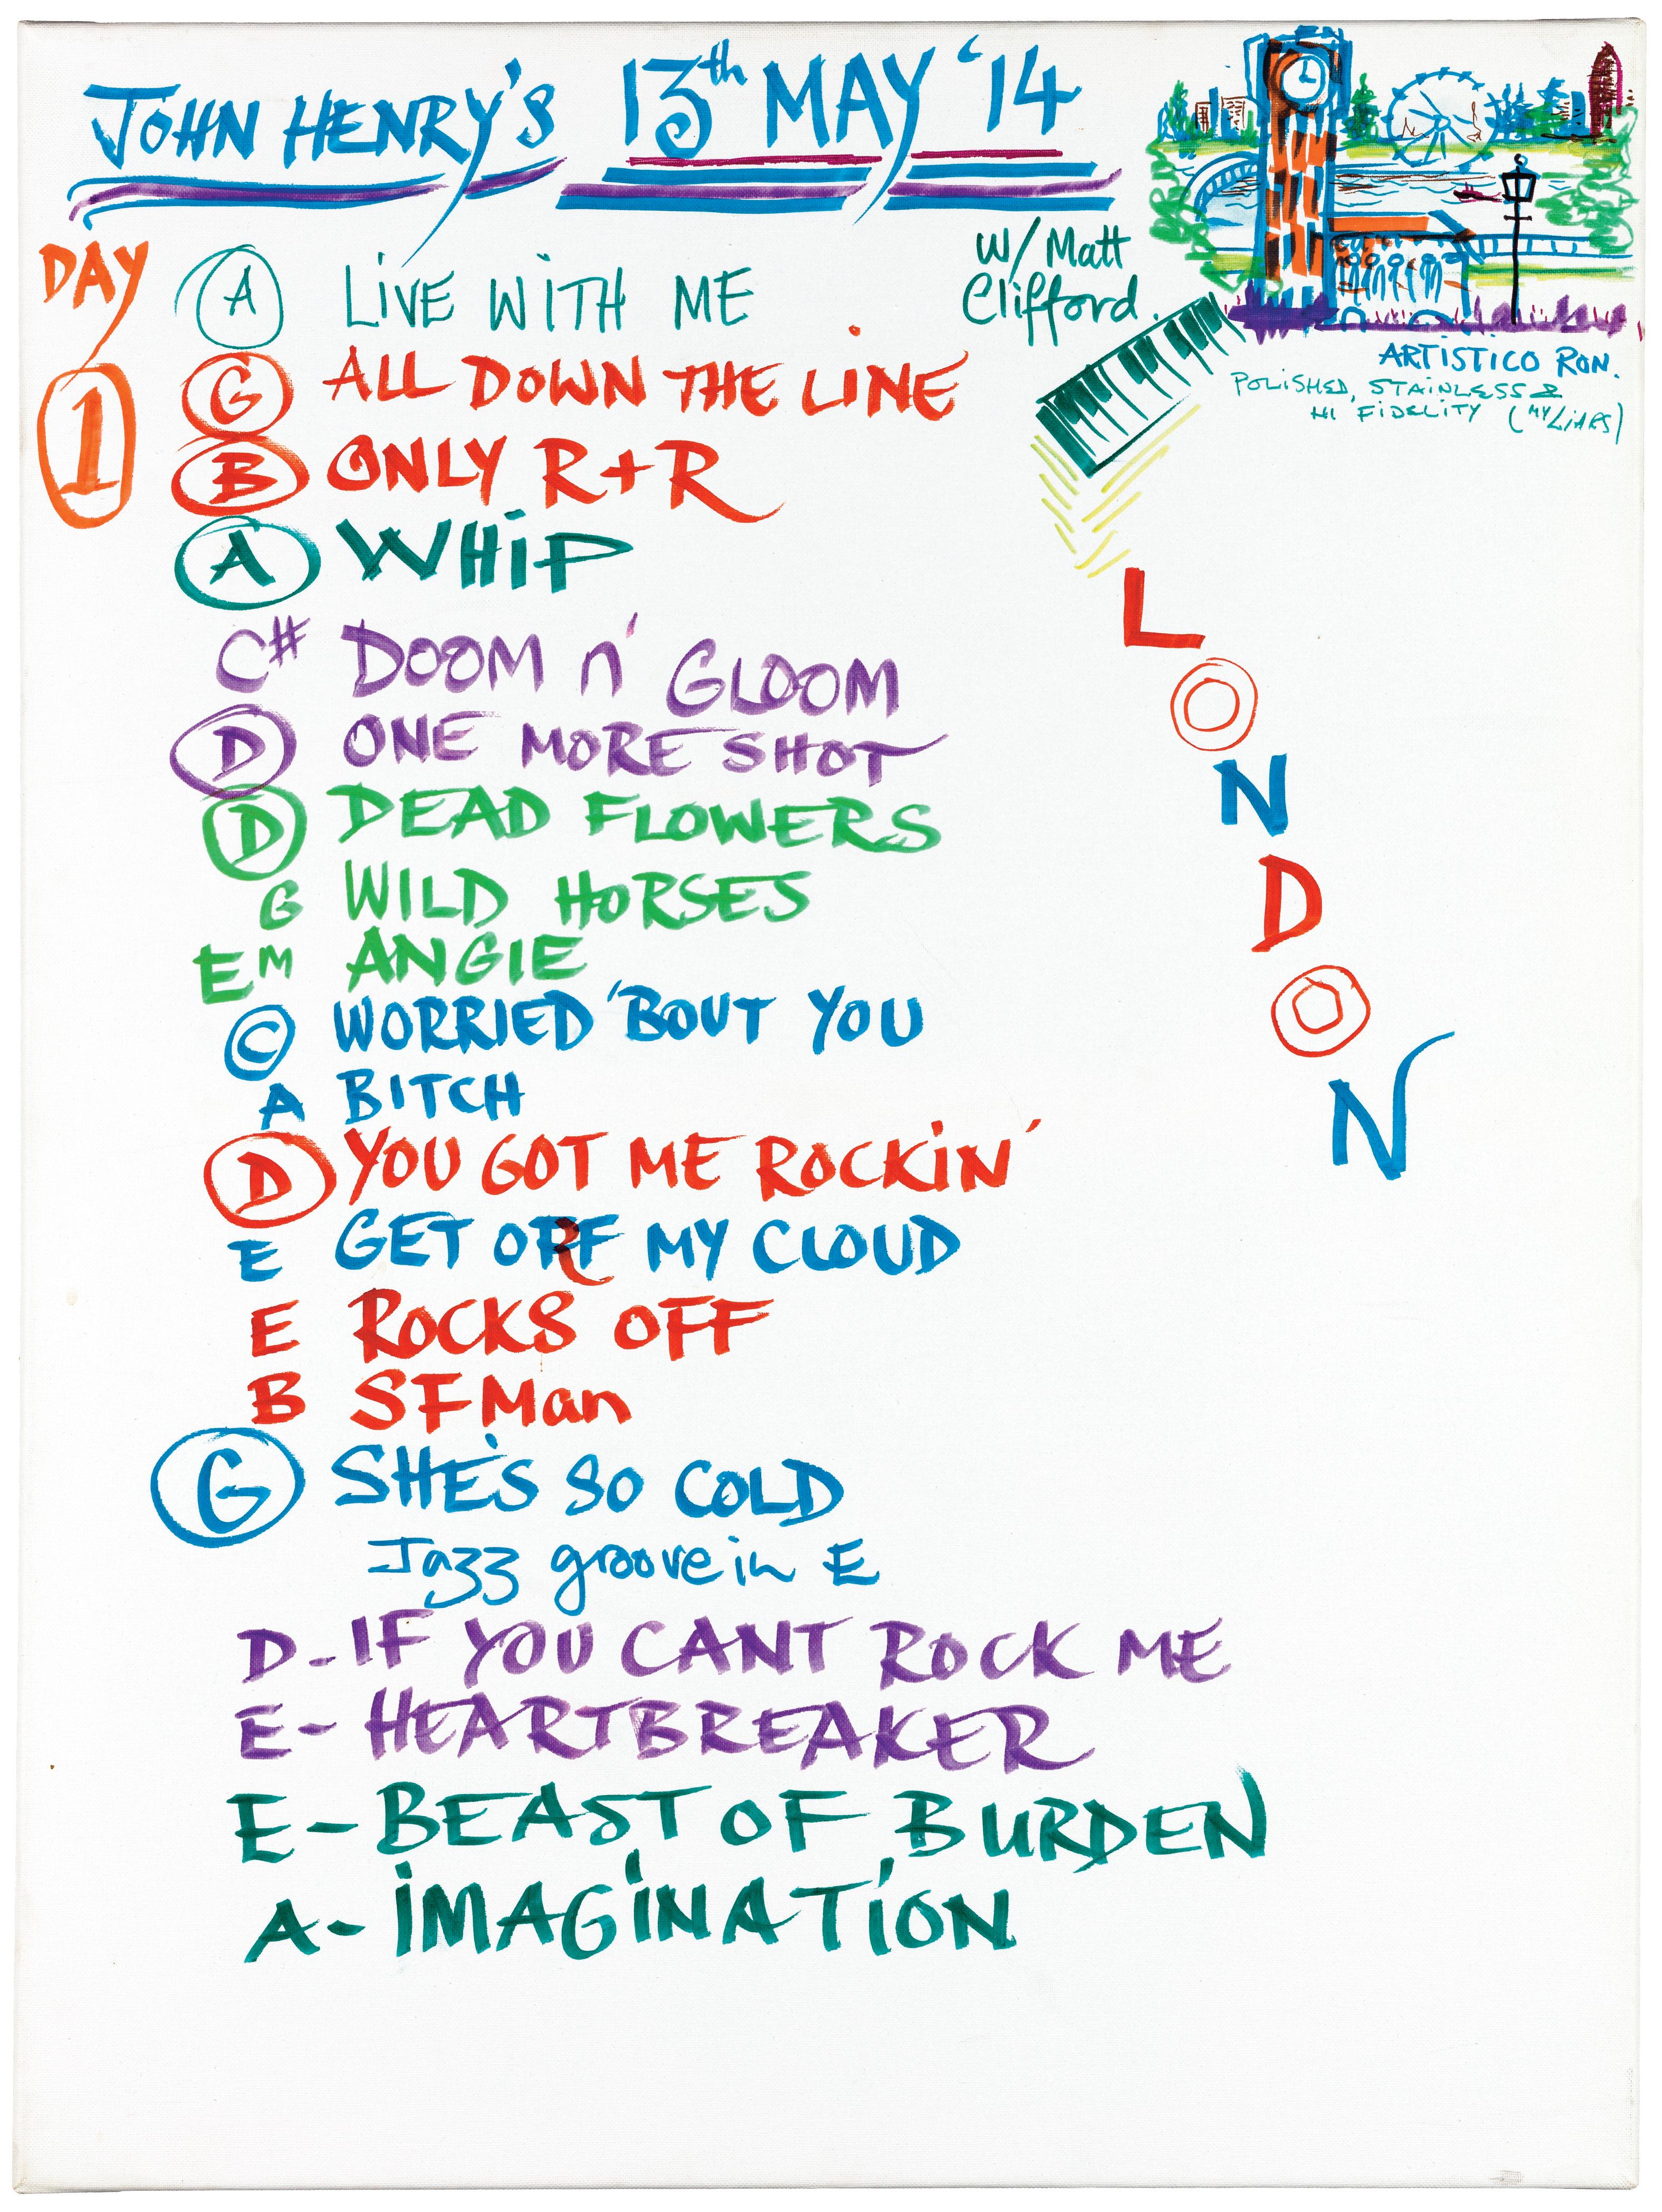 JOHN HENRY'S 13th MAY '14
DAY
1
W/ Matt
Clifford.
A LIVE WITH ME
G ALL DOWN THE LINE
B ONLY R+R
A WHIP
C# DOOM n' GLOOM
D ONE MORE SHOT
D DEAD FLOWERS
G WILD HORSES
EM ANGIE
C WORRIED 'BOUT YOU
A BITCH
D YOU GOT ME ROCKIN'
E GET OFF MY CLOUD
E ROCKS OFF
B SFMan
G SHE'S SO COLD
Jazz groove in E
D-IF YOU CANT ROCK ME
E-HEARTBREAKER
E-BEAST OF BURDEN
A-IMAGINATION
ARTISTICO RON.
POLISHED, STAINLESS &
HI FIDELITY
LONDON